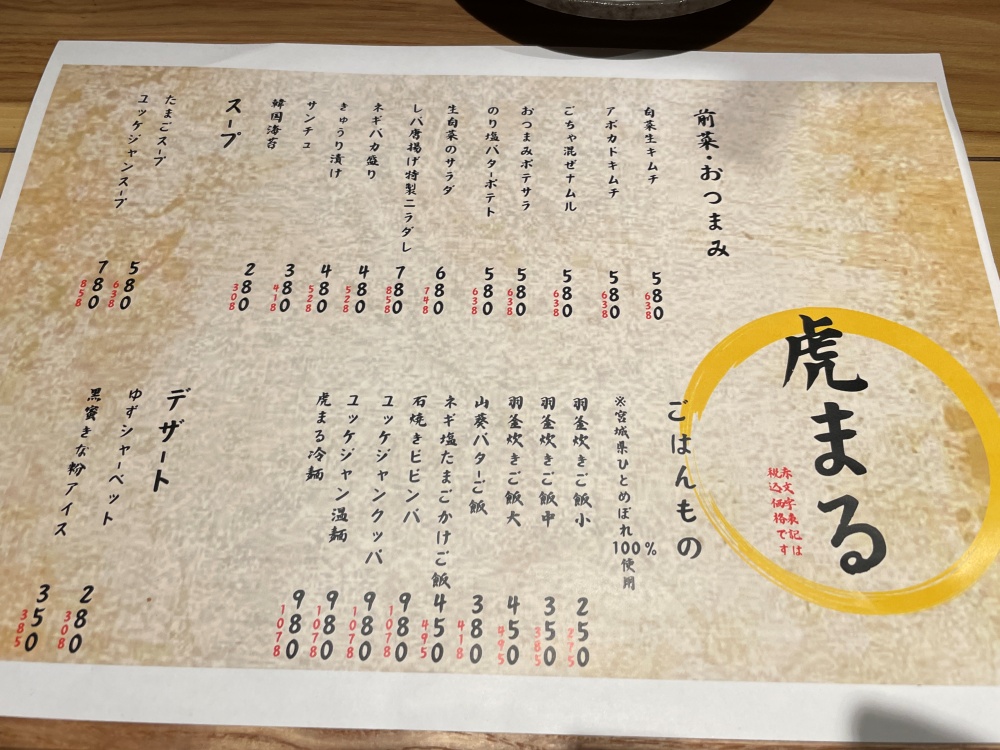 虎まる
赤文字表記は
税込価格です
前菜・おつまみ
白菜生キムチ 580 638
アボカドキムチ 580 638
ごちゃ混ぜナムル 580 638
おつまみポテサラ 580 638
のり塩バターポテト 580 638
生白菜のサラダ 680 748
レバ唐揚げ特製ニラダレ 780 858
ネギバカ盛り 480 528
きゅうり漬け 480 528
サンチュ 380 418
韓国海苔 280 308
スープ
たまごスープ 580 638
ユッケジャンスープ 780 858
ごはんもの
※宮城県ひとめぼれ100%使用
羽釜炊きご飯小 250 275
羽釜炊きご飯中 350 385
羽釜炊きご飯大 450 495
山葵バターご飯 380 418
ネギ塩たまごかけご飯 450 495
石焼きビビンバ 980 1078
ユッケジャンクッパ 980 1078
ユッケジャン温麺 980 1078
虎まる冷麺 980 1078
デザート
ゆずシャーベット 280 308
黒蜜きな粉アイス 350 385